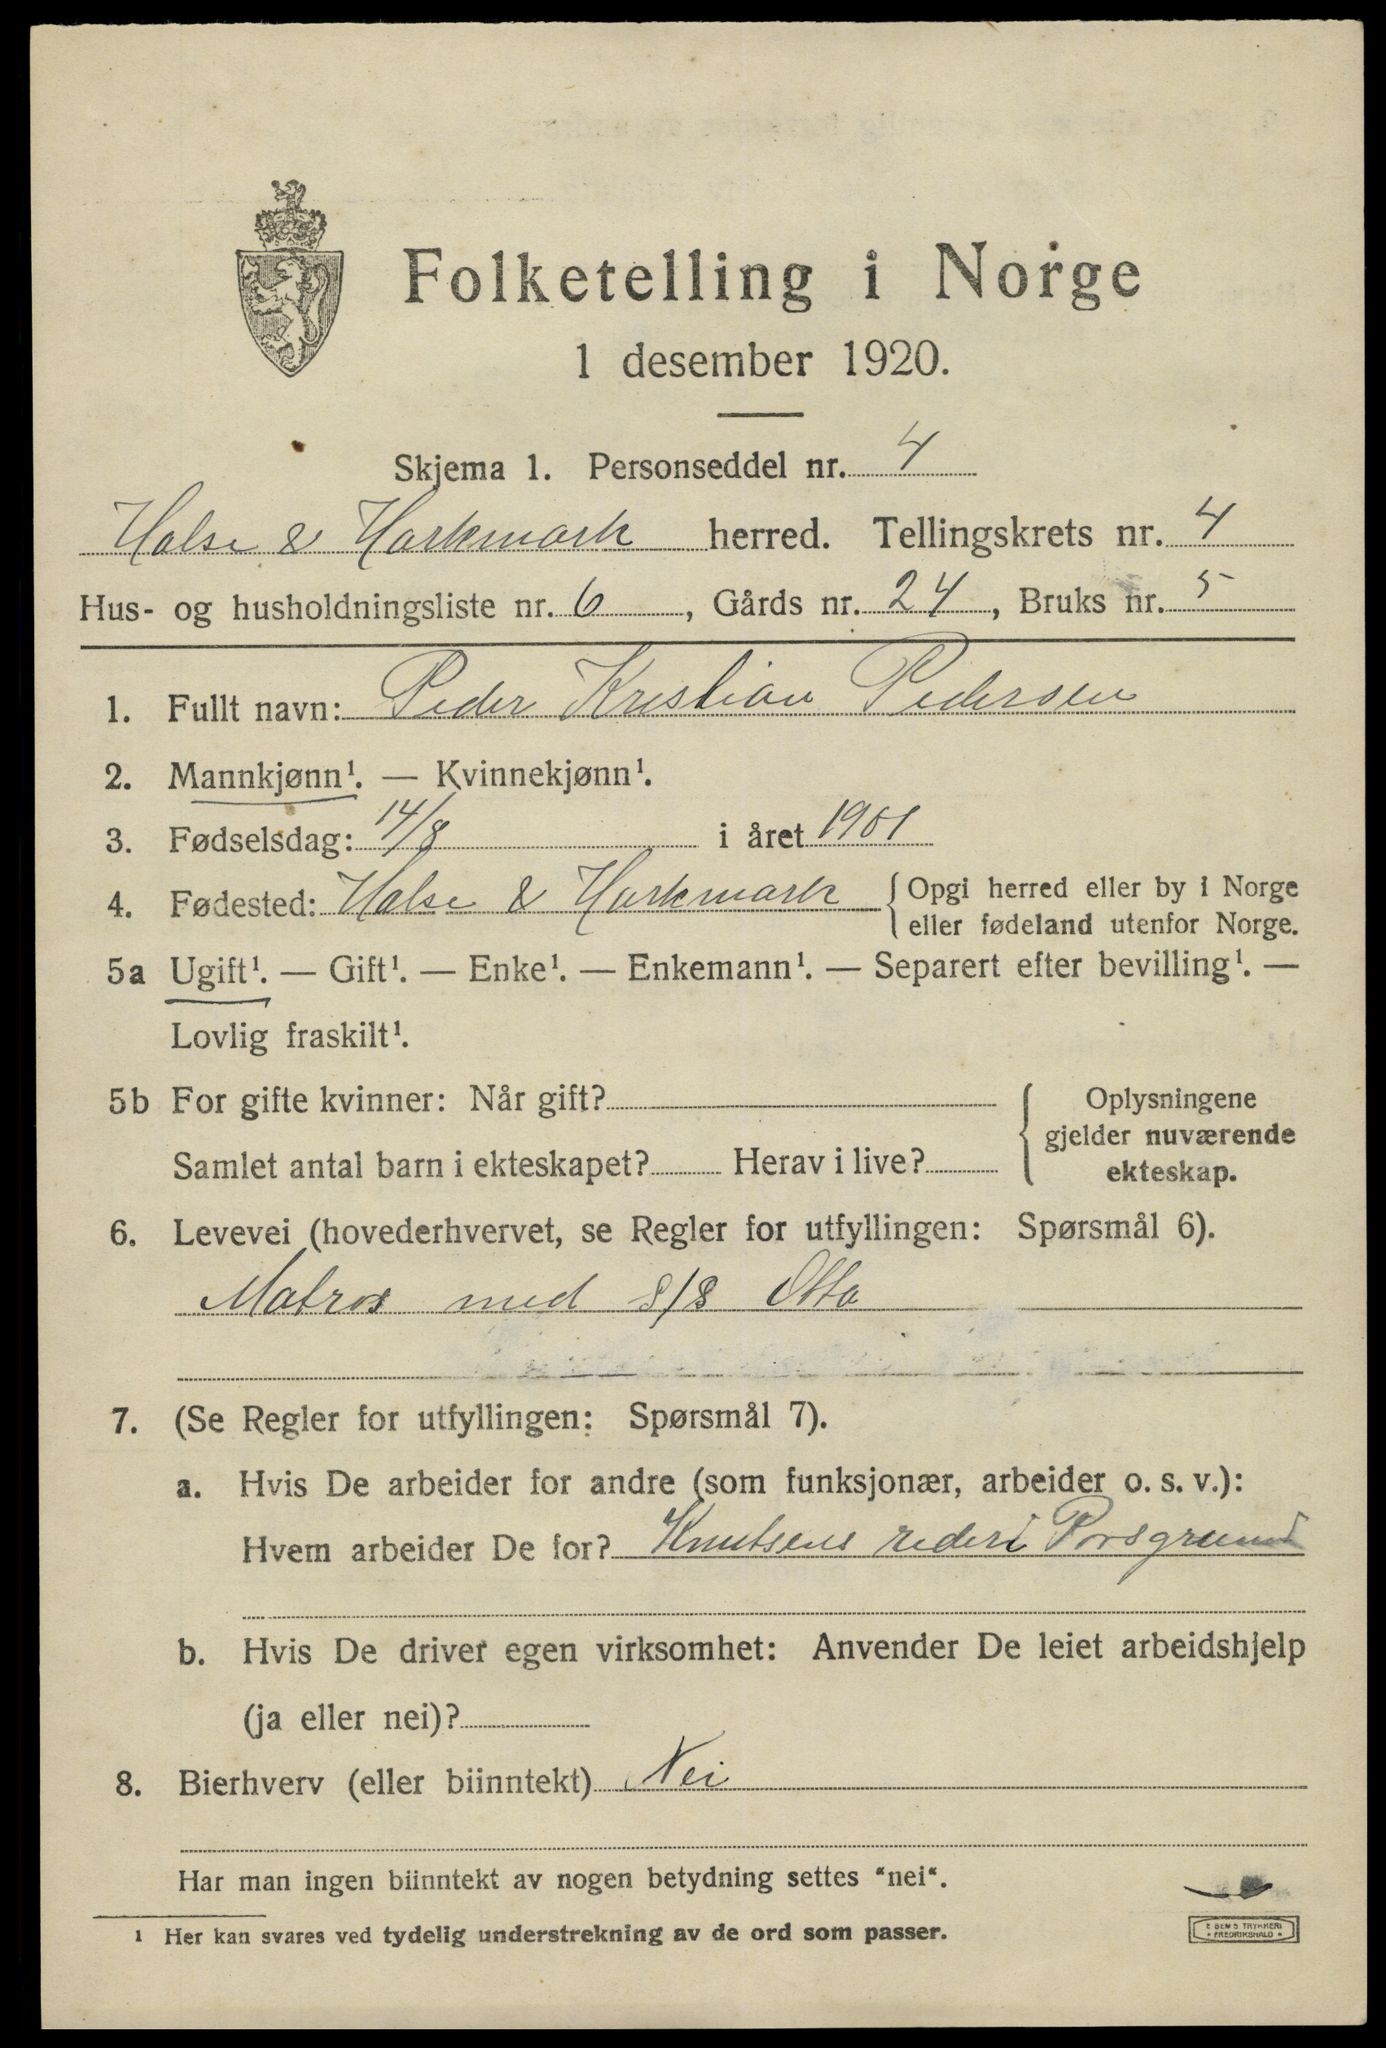 Folketelling i Norge
1 desember 1920.
Skjema 1. Personseddel nr. 4
Halse & Harkmark herred. Tellingskrets nr. 4
Hus- og husholdningsliste nr. 6, Gårds nr. 24, Bruks nr. 5
1. Fullt navn: Peder Kristian Pedersen
2. Mannkjønn¹. — Kvinnekjønn¹.
3. Fødselsdag: 14/8 i året 1901
4. Fødested: Halse & Harkmark { Opgi herred eller by i Norge
eller fødeland utenfor Norge.
5a Ugift¹. — Gift¹. — Enke¹. — Enkemann¹. — Separert efter bevilling¹. —
Lovlig fraskilt¹.
5b For gifte kvinner: Når gift? { Oplysningene
gjelder nuværende
Samlet antal barn i ekteskapet? Herav i live? ekteskap.
6. Levevei (hovederhvervet, se Regler for utfyllingen: Spørsmål 6).
Matros med s/s Otto
7. (Se Regler for utfyllingen: Spørsmål 7).
a. Hvis De arbeider for andre (som funksjonær, arbeider o. s. v.):
Hvem arbeider De for? Knutsens rederi Porsgrund
b. Hvis De driver egen virksomhet: Anvender De leiet arbeidshjelp
(ja eller nei)?
8. Bierhverv (eller biinntekt) Nei
Har man ingen biinntekt av nogen betydning settes "nei".
1 Her kan svares ved tydelig understrekning av de ord som passer.
E SEM'S TRYKKERI
FREDRIKSHALD